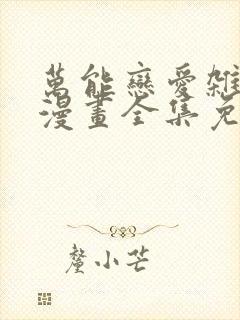 萬能戀愛雜
漫畫全集免
鳌小芒